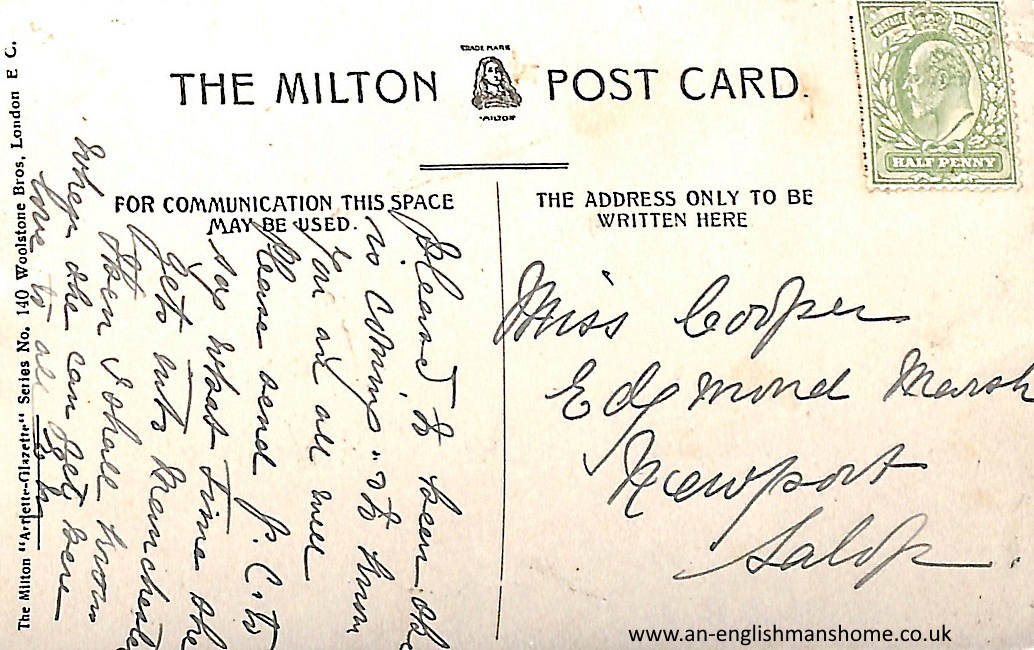 TRADE MARK
THE MILTON POST CARD.
"MILTON"
POSTAGE REVENUE
HALF PENNY
FOR COMMUNICATION THIS SPACE
MAY BE USED.
THE ADDRESS ONLY TO BE
WRITTEN HERE
Pleased to hear she
is coming & to know
you are all well
Please send P. C. to
say what time she
gets into Manchester
then I shall know
when she can get here
love to all
Miss Cooper
Edgmond Marsh
Newport
Salop
The Milton "Artlette-Glazette" Series No. 140 Woolstone Bros, London E C.
www.an-englishmanshome.co.uk